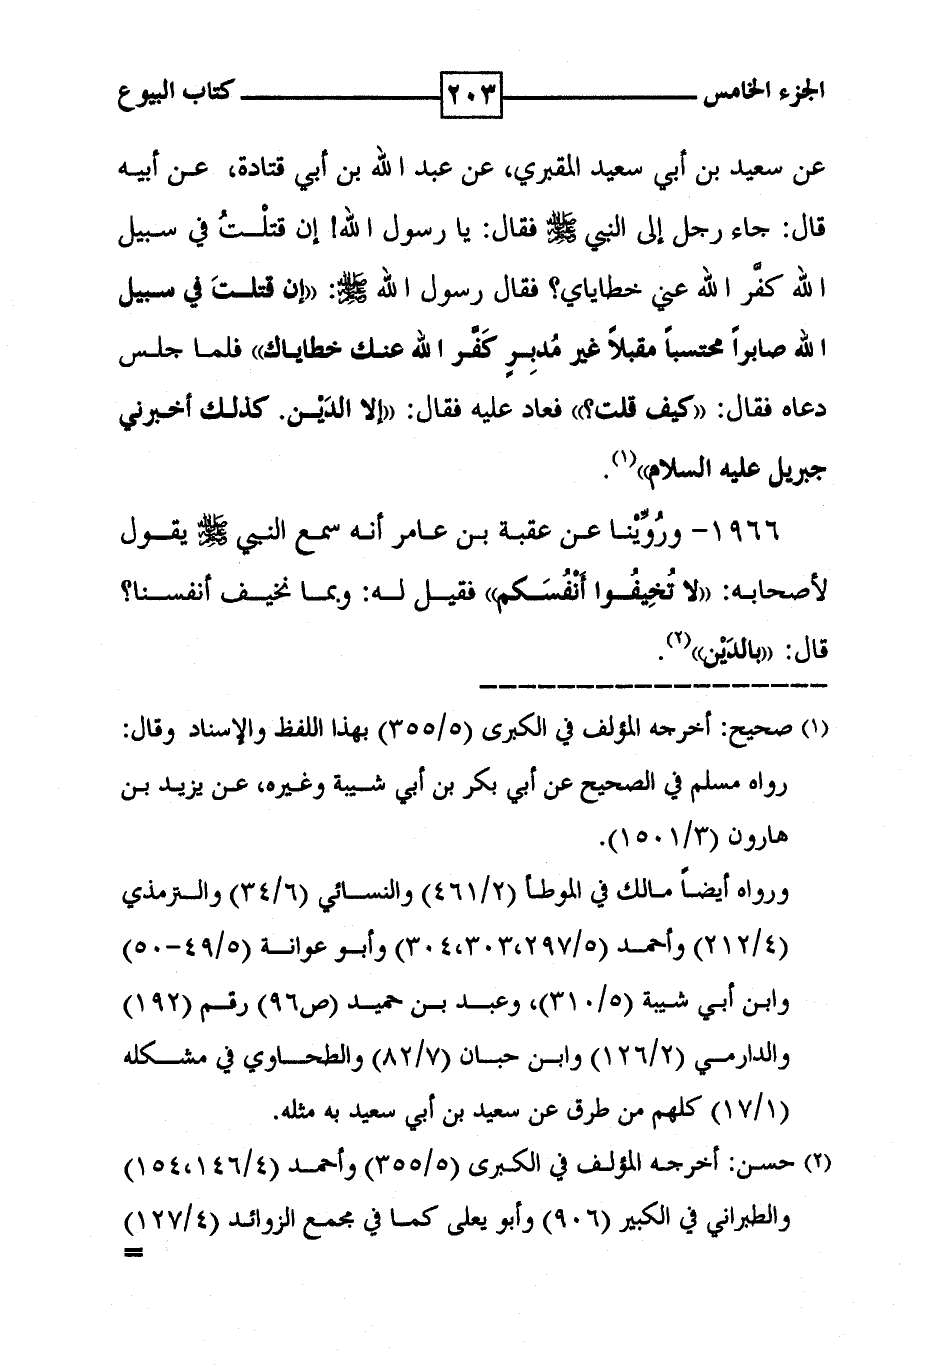 الجزء الخامس ٢٠٣ كتاب البيوع
عن سعيد بن أبي سعيد المقبري، عن عبد الله بن أبي قتادة، عن أبيه
قال: جاء رجل إلى النبي ﷺ فقال: يا رسول الله! إن قتلْتُ في سبيل
الله كفَّر الله عني خطاياي؟ فقال رسول الله ﷺ: «إن قتلتَ في سبيل
الله صابراً محتسباً مقبلاً غير مُدبِرٍ كَفَّر الله عنك خطاياك» فلما جلس
دعاه فقال: «كيف قلت؟» فعاد عليه فقال: «إلا الدَيْن. كذلك أخبرني
جبريل عليه السلام»(١).
١٩٦٦- ورُوِّينا عن عقبة بن عامر أنه سمع النبي ﷺ يقول
لأصحابه: «لا تُخِيفُوا أَنْفُسَكم» فقيل له: وبما نخيف أنفسنا؟
قال: «بالدَيْن»(٢).
(١) صحيح: أخرجه المؤلف في الكبرى (٣٥٥/٥) بهذا اللفظ والإسناد وقال:
رواه مسلم في الصحيح عن أبي بكر بن أبي شيبة وغيره، عن يزيد بن
هارون (١٥٠١/٣).
ورواه أيضاً مالك في الموطأ (٤٦١/٢) والنسائي (٣٤/٦) والترمذي
(٢١٢/٤) وأحمد (٣٠٤،٣٠٣،٢٩٧/٥) وأبو عوانة (٤٩/٥-٥٠)
وابن أبي شيبة (٣١٠/٥)، وعبد بن حميد (ص٩٦) رقم (١٩٢)
والدارمي (١٢٦/٢) وابن حبان (٨٢/٧) والطحاوي في مشكله
(١٧/١) كلهم من طرق عن سعيد بن أبي سعيد به مثله.
(٢) حسن: أخرجه المؤلف في الكبرى (٣٥٥/٥) وأحمد (١٥٤،١٤٦/٤)
والطبراني في الكبير (٩٠٦) وأبو يعلى كما في مجمع الزوائد (١٢٧/٤)
=